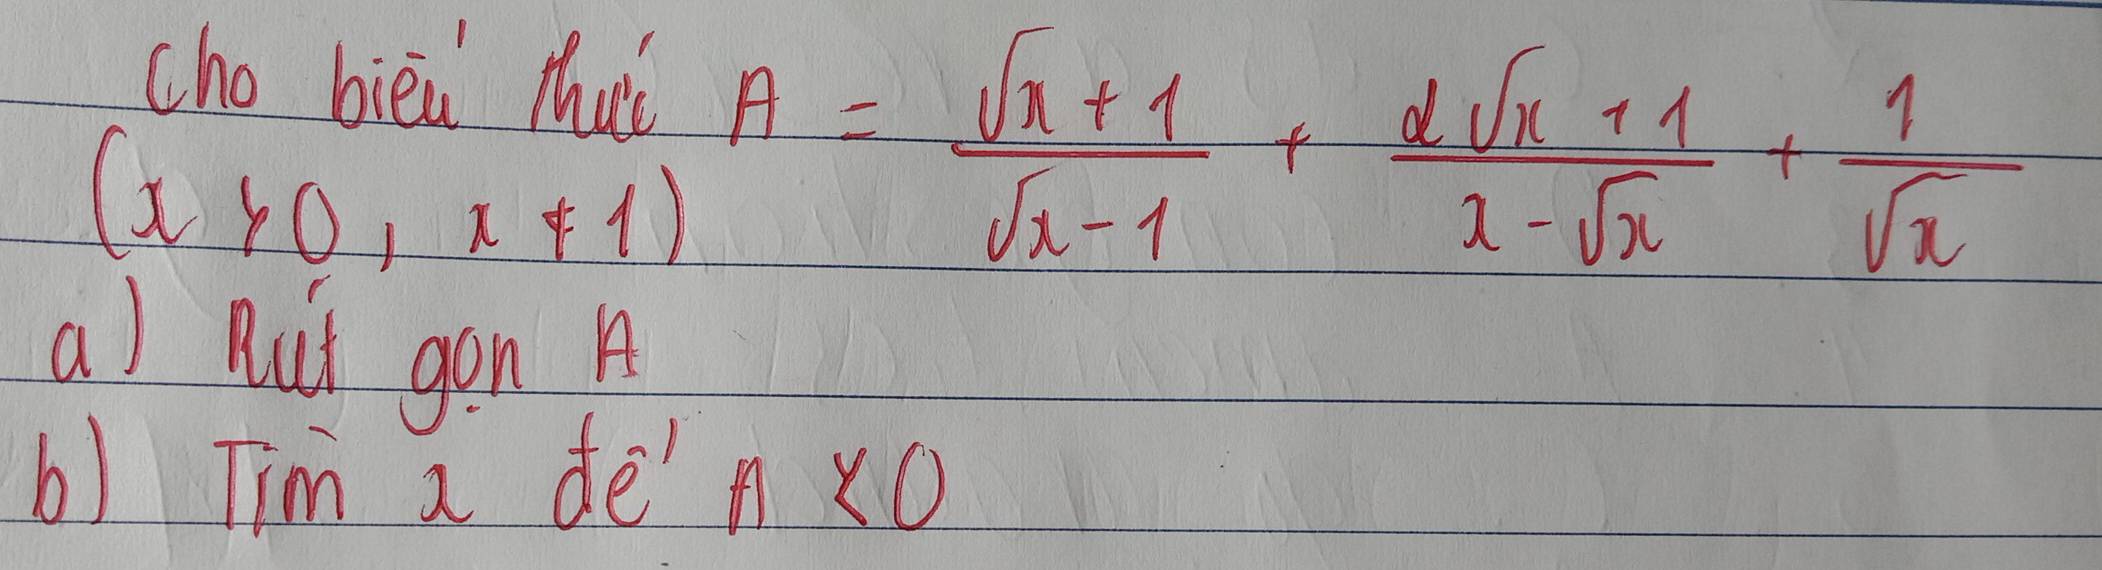 Cho biểu thức A = \frac{\sqrt{x} + 1}{\sqrt{x} - 1} + \frac{2\sqrt{x} + 1}{x - \sqrt{x}} + \frac{1}{\sqrt{x}}
(x > 0, x ≠ 1)
a) Rút gọn A
b) Tìm x để A < 0